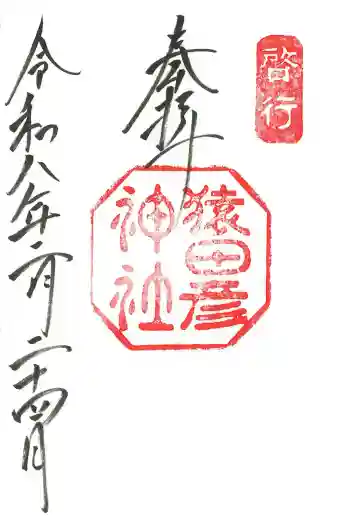 啓行
奉拝
猿田彦
神社
令和八年二月二十四日